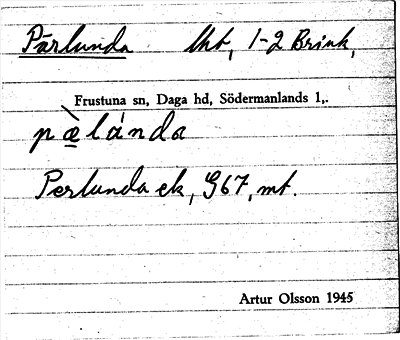 Pärlunda lht, 1-2 Brink,
Frustuna sn, Daga hd, Södermanlands l,.
pæ̀lánda
Perlunda ek, G67, mt.
Artur Olsson 1945